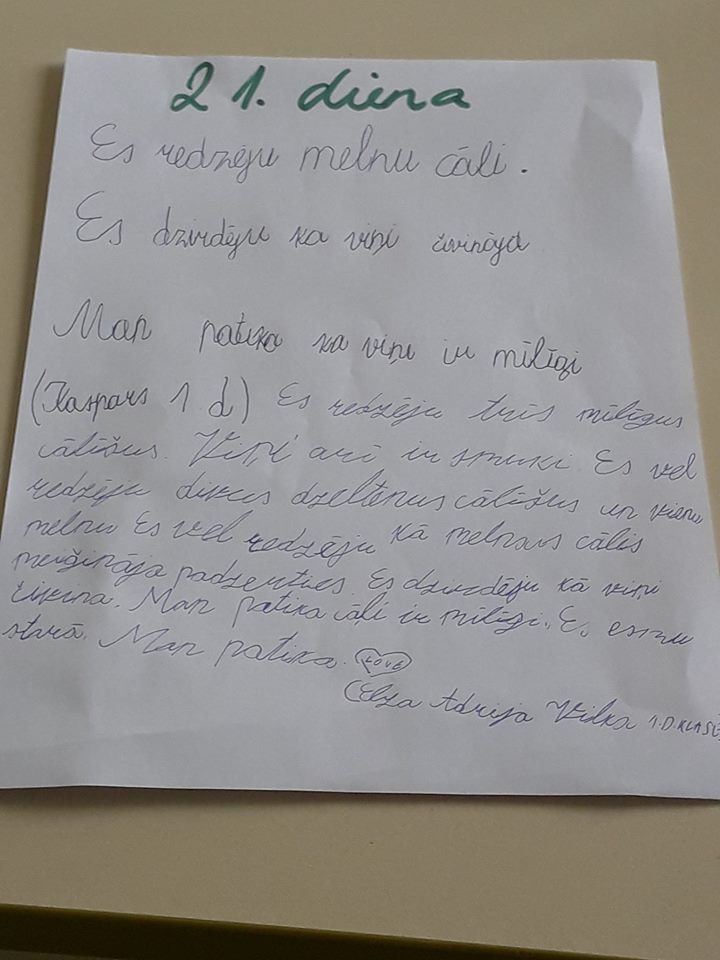 21. diena
Es redzēju melnu cāli.
Es dzirdēju ka viņi čivināja
Man patika ka viņi ir mīlīgi
(Kaspars 1 d) Es redzēju trīs mīlīgus
cālīšus. Viņi arī ir smuki. Es vel
redzēju divus dzeltenus cālīšus un vienu
melnu Es vel redzēju kā melnais cālis
meiģināja padzerties. Es dzirdēju kā viņi
čivina. Man patika cāļi ir mīlīgi. Es esmu
starā. Man patika. LOVE
Elza Adrija Vilka 1.D.KLASE